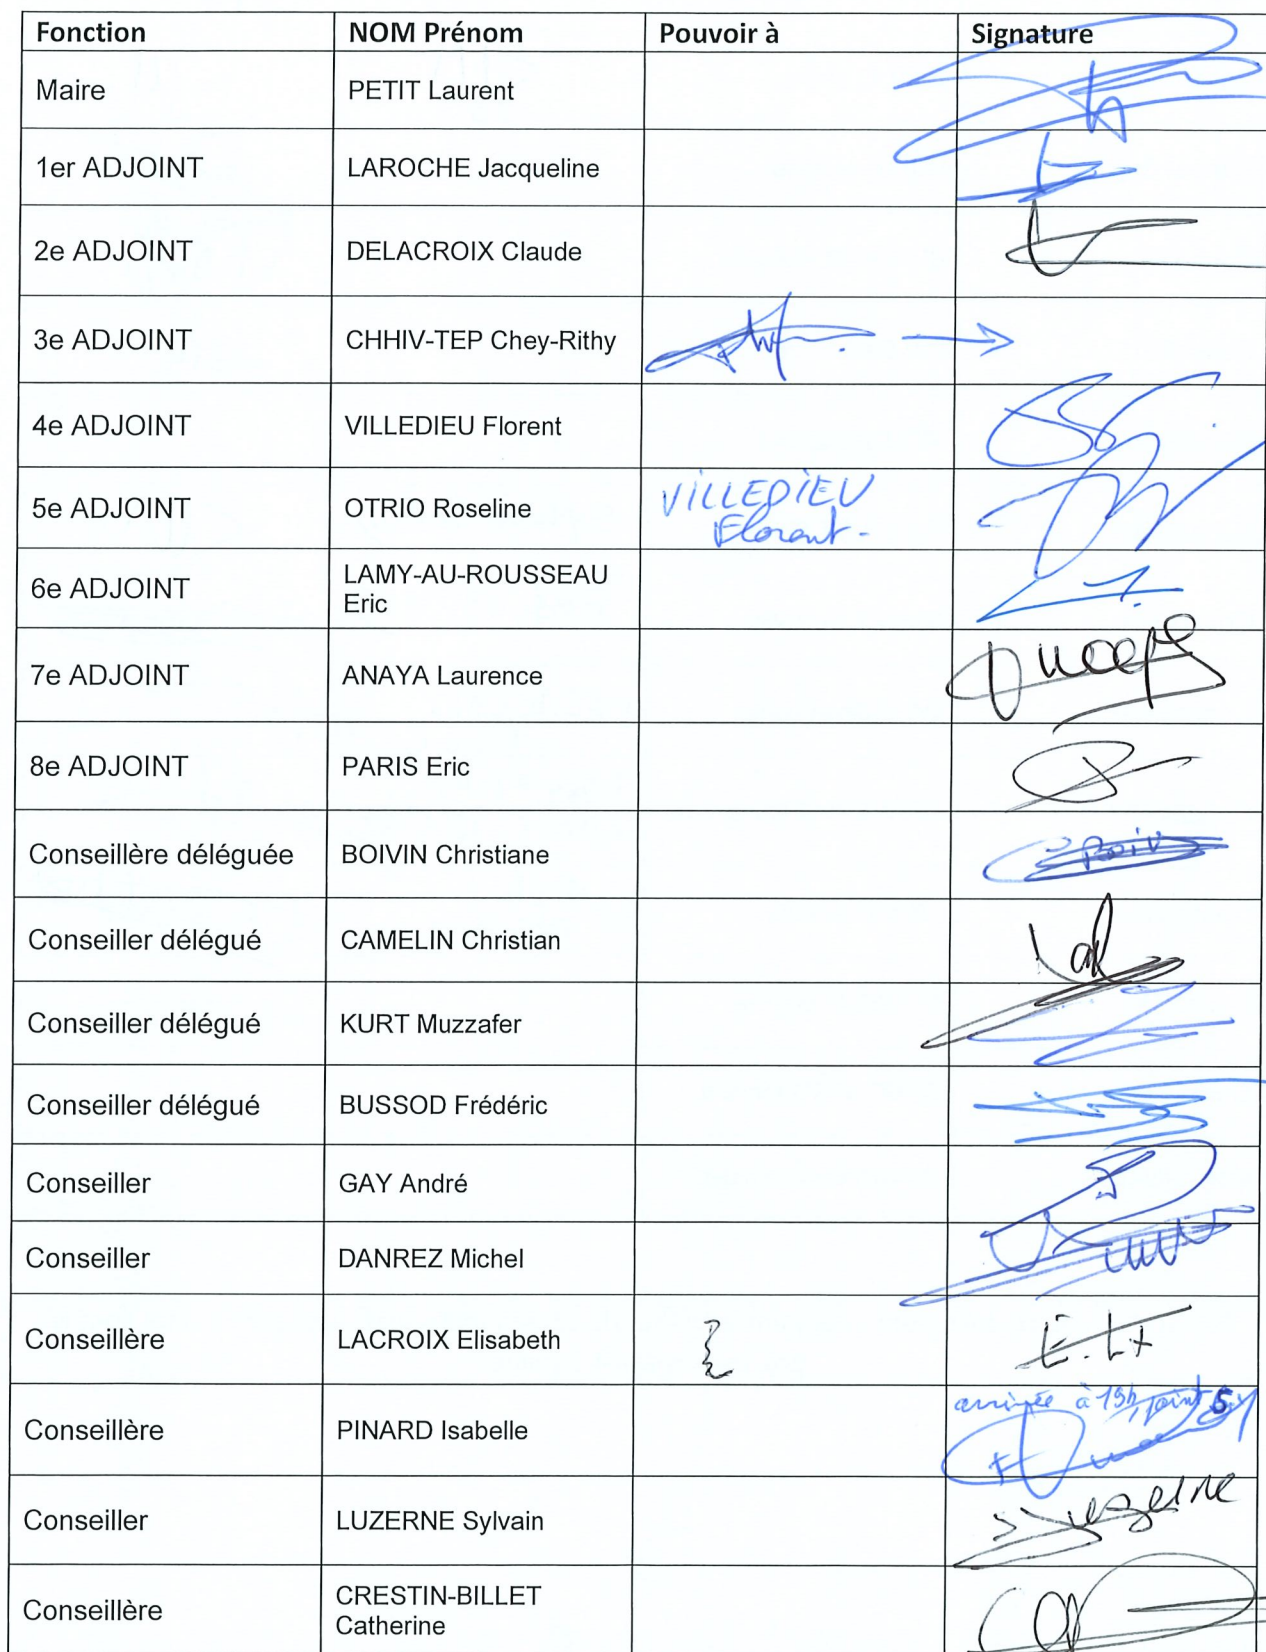 Fonction NOM Prénom Pouvoir à Signature
Maire PETIT Laurent
1er ADJOINT LAROCHE Jacqueline
2e ADJOINT DELACROIX Claude
3e ADJOINT CHHIV-TEP Chey-Rithy
4e ADJOINT VILLEDIEU Florent
5e ADJOINT OTRIO Roseline VILLEDIEU
Florent -
6e ADJOINT LAMY-AU-ROUSSEAU
Eric
7e ADJOINT ANAYA Laurence
8e ADJOINT PARIS Eric
Conseillère déléguée BOIVIN Christiane
Conseiller délégué CAMELIN Christian
Conseiller délégué KURT Muzzafer
Conseiller délégué BUSSOD Frédéric
Conseiller GAY André
Conseiller DANREZ Michel
Conseillère LACROIX Elisabeth E. LX
arrivée à 19h, point 5
Conseillère PINARD Isabelle
Conseiller LUZERNE Sylvain Luzerne
Conseillère CRESTIN-BILLET
Catherine